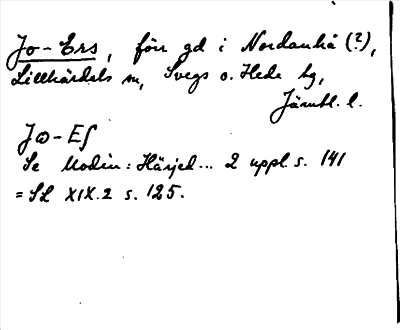 Jo-Ers, förr gd i Nordanhå (?),
Lillhärdals sn, Svegs o. Hede tg,
Jämtl. l.
Jo-Es
Se Modin: Härjed... 2 uppl. s. 141
= SL XIX.2 s. 125.